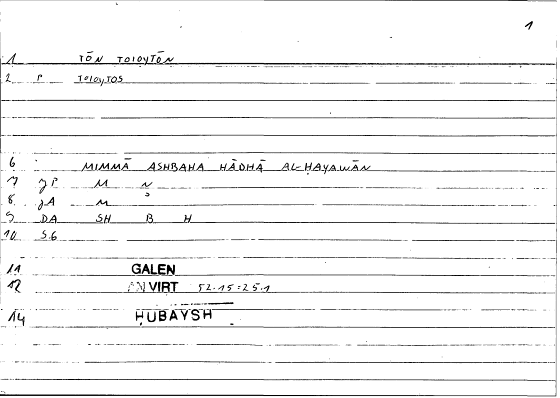 1
1 TŌN TOIOYTŌN
2 P TOIOYTOS
6 MIMMĀ ASHBAHA HĀDHĀ AL-HAYAWĀN
7 JP M N
8 JA M
9 DA SH B H
10 S6
11 GALEN
12 AN VIRT 52.15:25.1
14 ḤUBAYSH